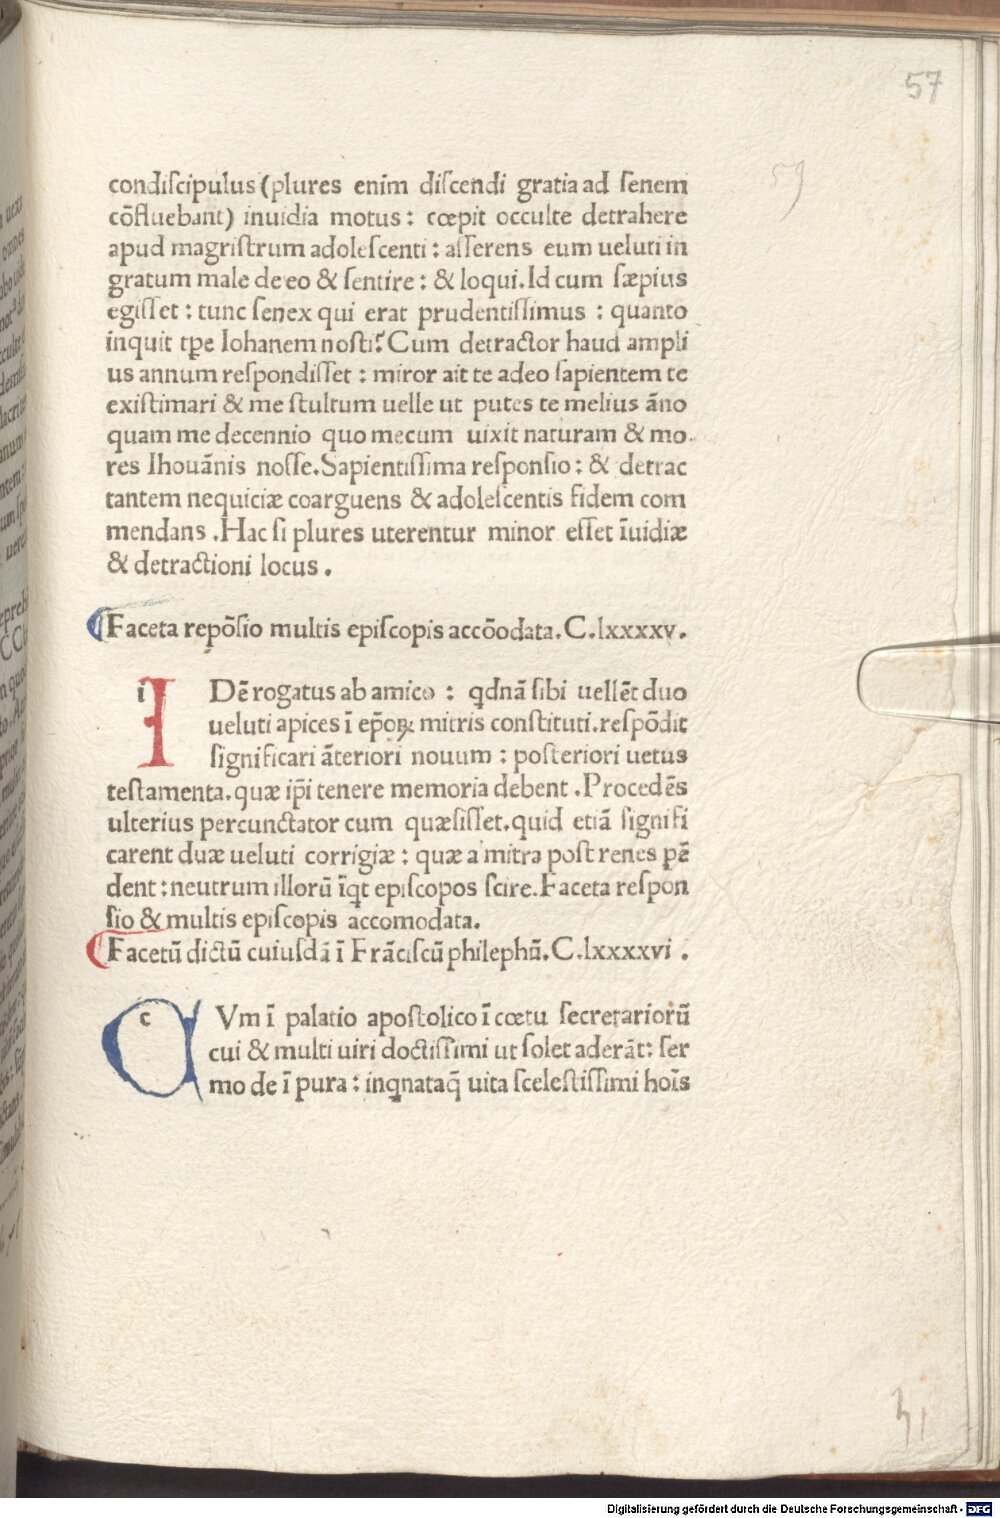 57
59
condiſcipulus (plures enim diſcendi gratia ad ſenem
cōfluebant) inuidia motus : cœpit occulte detrahere
apud magriſtrum adoleſcenti : aſſerens eum ueluti in
gratum male de eo & ſentire : & loqui. Id cum ſæpius
egiſſet : tunc ſenex qui erat prudentiſſimus : quanto
inquit tpe Iohanem noſti? Cum detractor haud ampli
us annum reſpondiſſet : miror ait te adeo ſapientem te
exiſtimari & me ſtultum uelle ut putes te melius āno
quam me decennio quo mecum uixit naturam & mo.
res Ihouānis noſſe. Sapientiſſima reſponſio : & detrac
tantem nequiciæ coarguens & adoleſcentis fidem com
mendans . Hac ſi plures uterentur minor eſſet īuidiæ
& detractioni locus .
Faceta repōſio multis epiſcopis accōodata. C. lxxxxv.
i IDē rogatus ab amico : qdnā ſibi uellēt duo
ueluti apices ī ep̄oꝝ mitris conſtituti. reſpōdit
ſignificari āteriori nouum : poſteriori uetus
teſtamenta. quæ ip̄i tenere memoria debent . Procedēs
ulterius percunctator cum quæſiſſet. quid etiā ſignifi
carent duæ ueluti corrigiæ : quæ a mitra poſt renes pē
dent : neutrum illorū īqt epiſcopos ſcire. Faceta reſpon
ſio & multis epiſcopis accomodata.
Facetū dictū cuiuſdā ī Frāciſcū philephū. C. lxxxxvi .
c CVm ī palatio apoſtolico ī cœtu ſecretariorū
cui & multi uiri doctiſſimi ut ſolet aderāt : ſer
mo de ī pura : inqnataq̄ uita ſceleſtiſſimi hoīs
Digitalisierung gefördert durch die Deutsche Forschungsgemeinschaft - DFG